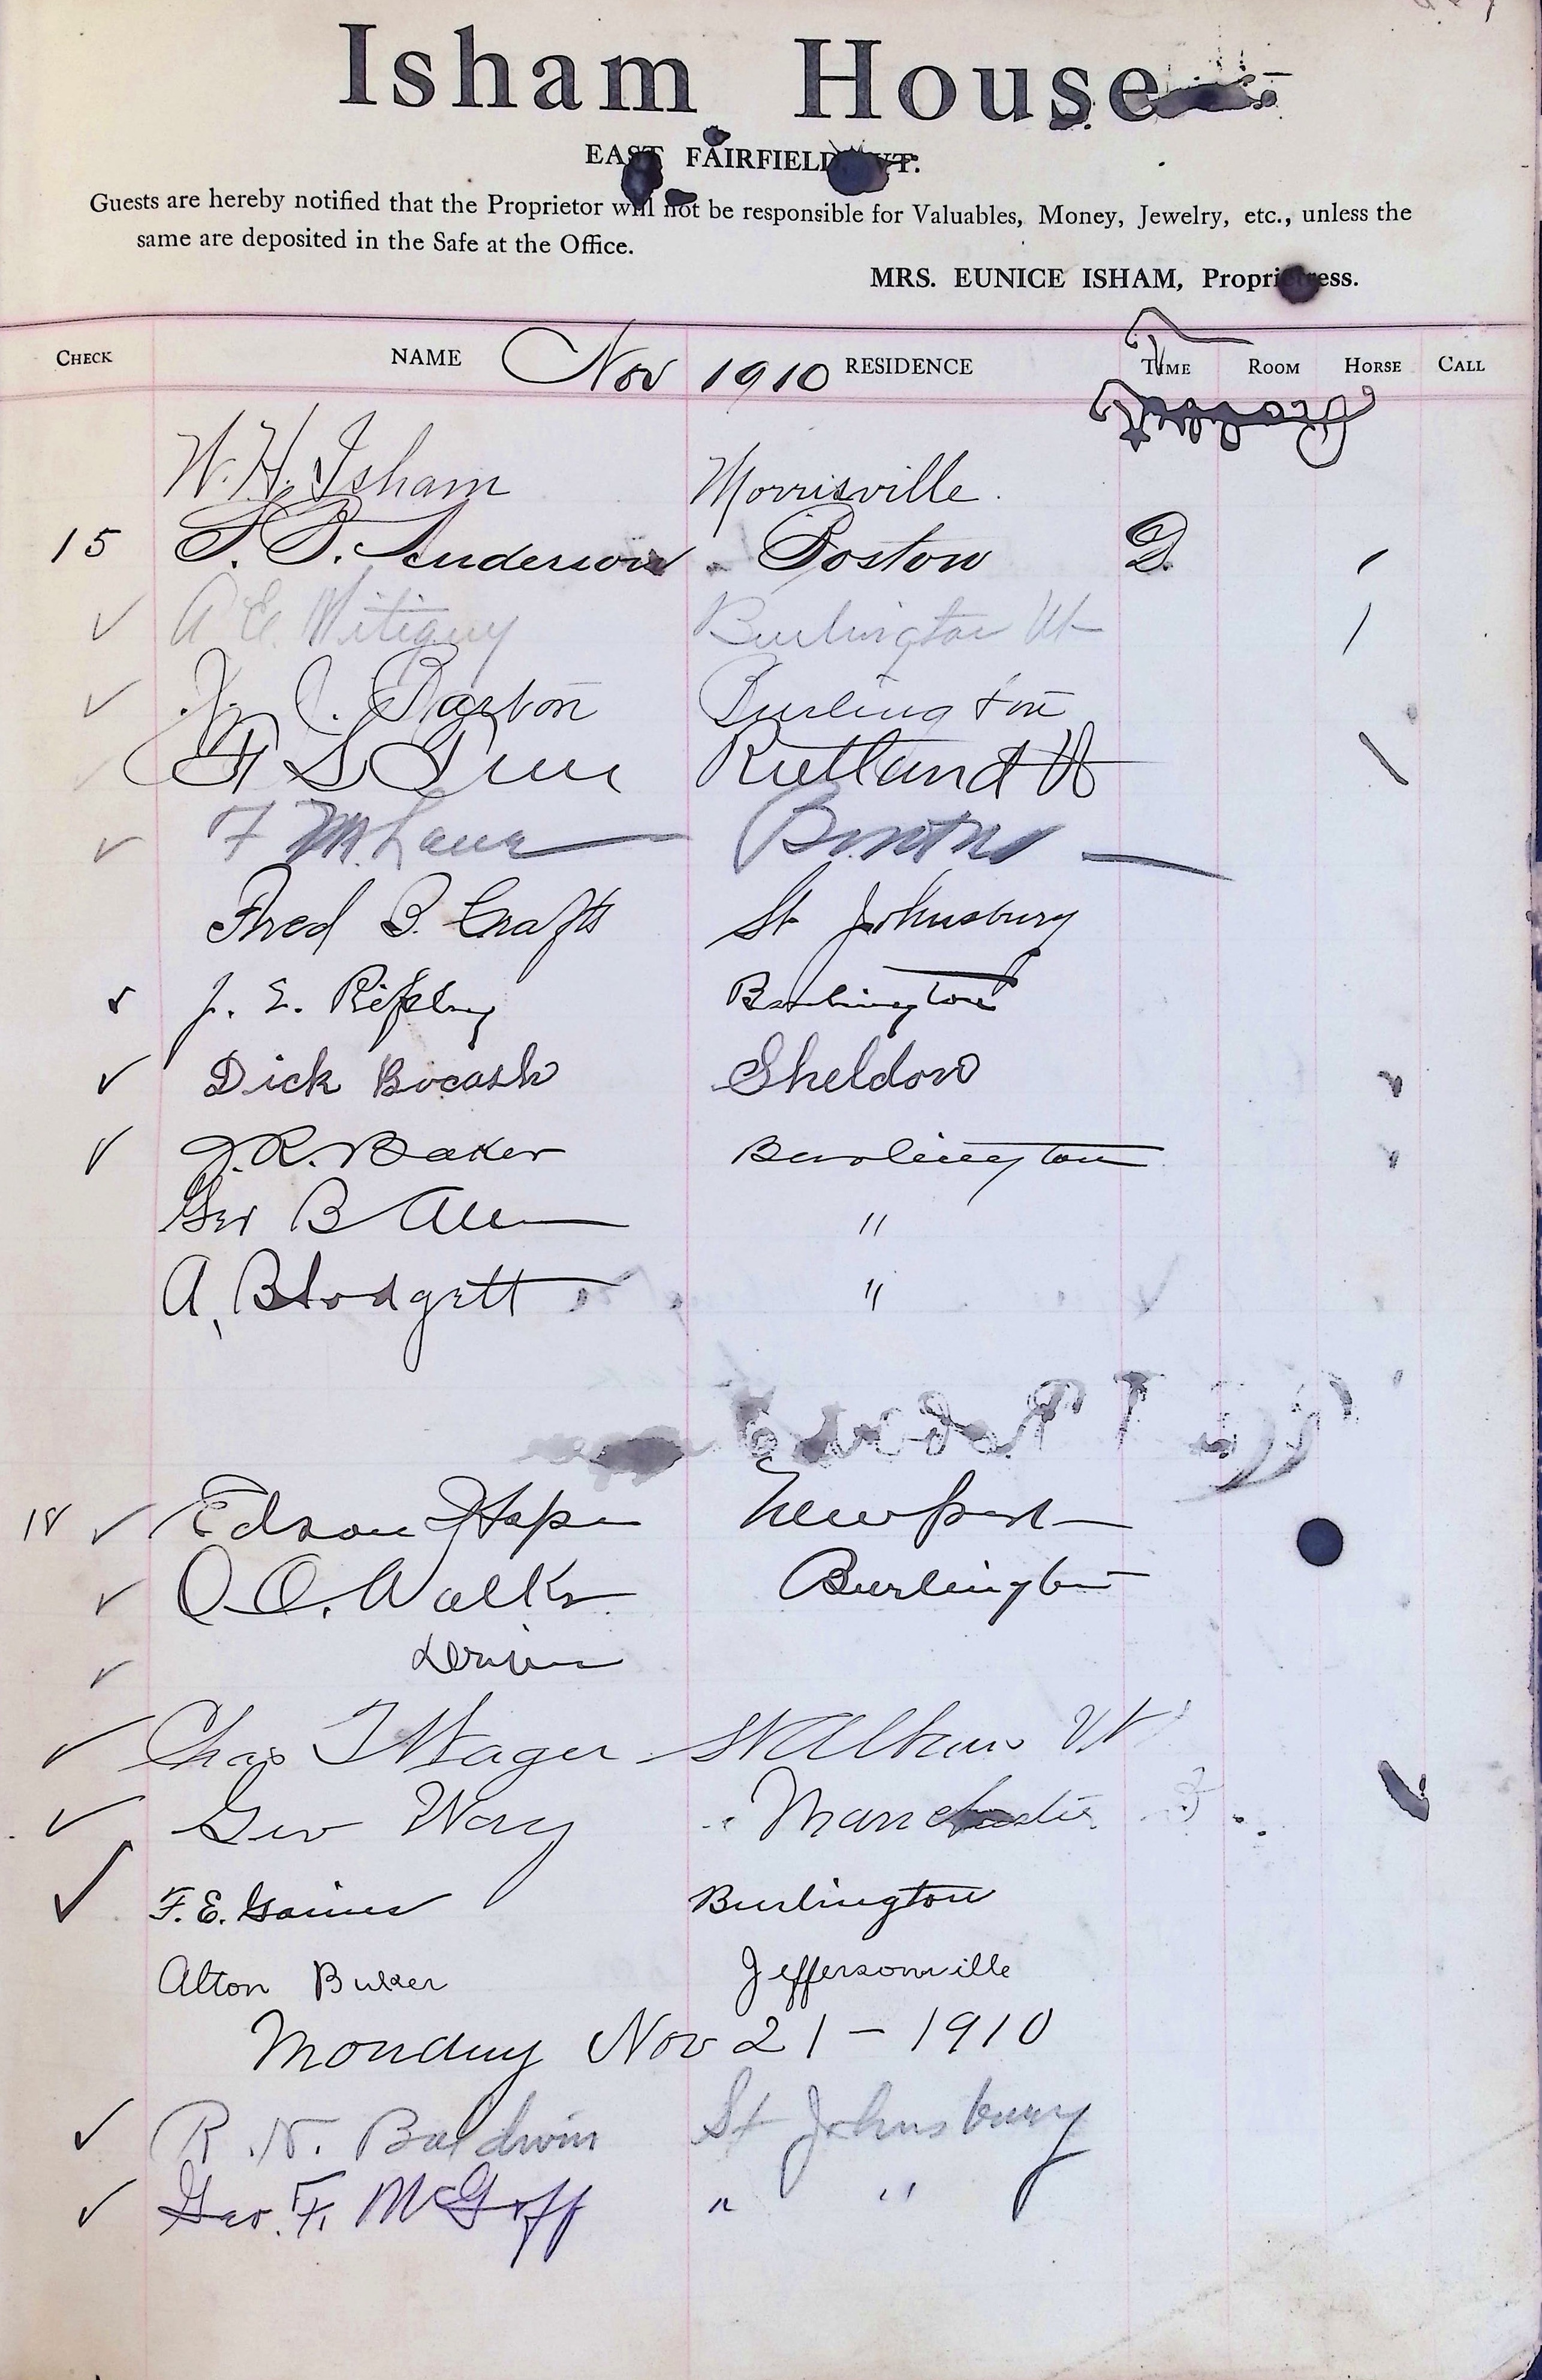 Isham House
EAST FAIRFIELD, VT.
Guests are hereby notified that the Proprietor will not be responsible for Valuables, Money, Jewelry, etc., unless the
same are deposited in the Safe at the Office.
MRS. EUNICE ISHAM, Proprietress.
CHECK NAME Nov 1910 RESIDENCE TIME ROOM HORSE CALL
W. H. Isham Morrisville.
15 Anderson Boston D.
A E Mitiguy Burlington Vt
Barton Burlington
Rutland Vt
F M Lane
Fred B. Crafts St Johnsbury
J. E. Ripley Burlington
Dick Bocash Sheldon
J. R. Baker Burlington
Geo B Allen "
A. Blodgett "
18 Edson Newport
O. O. Walker Burlington
Driver
Chas St Albans Vt
Geo Way Manchester
F. E. Gaines Burlington
Alton Buker Jeffersonville
Monday Nov 21 - 1910
R. N. Baldwin St Johnsbury
Geo. F. McGoff " "